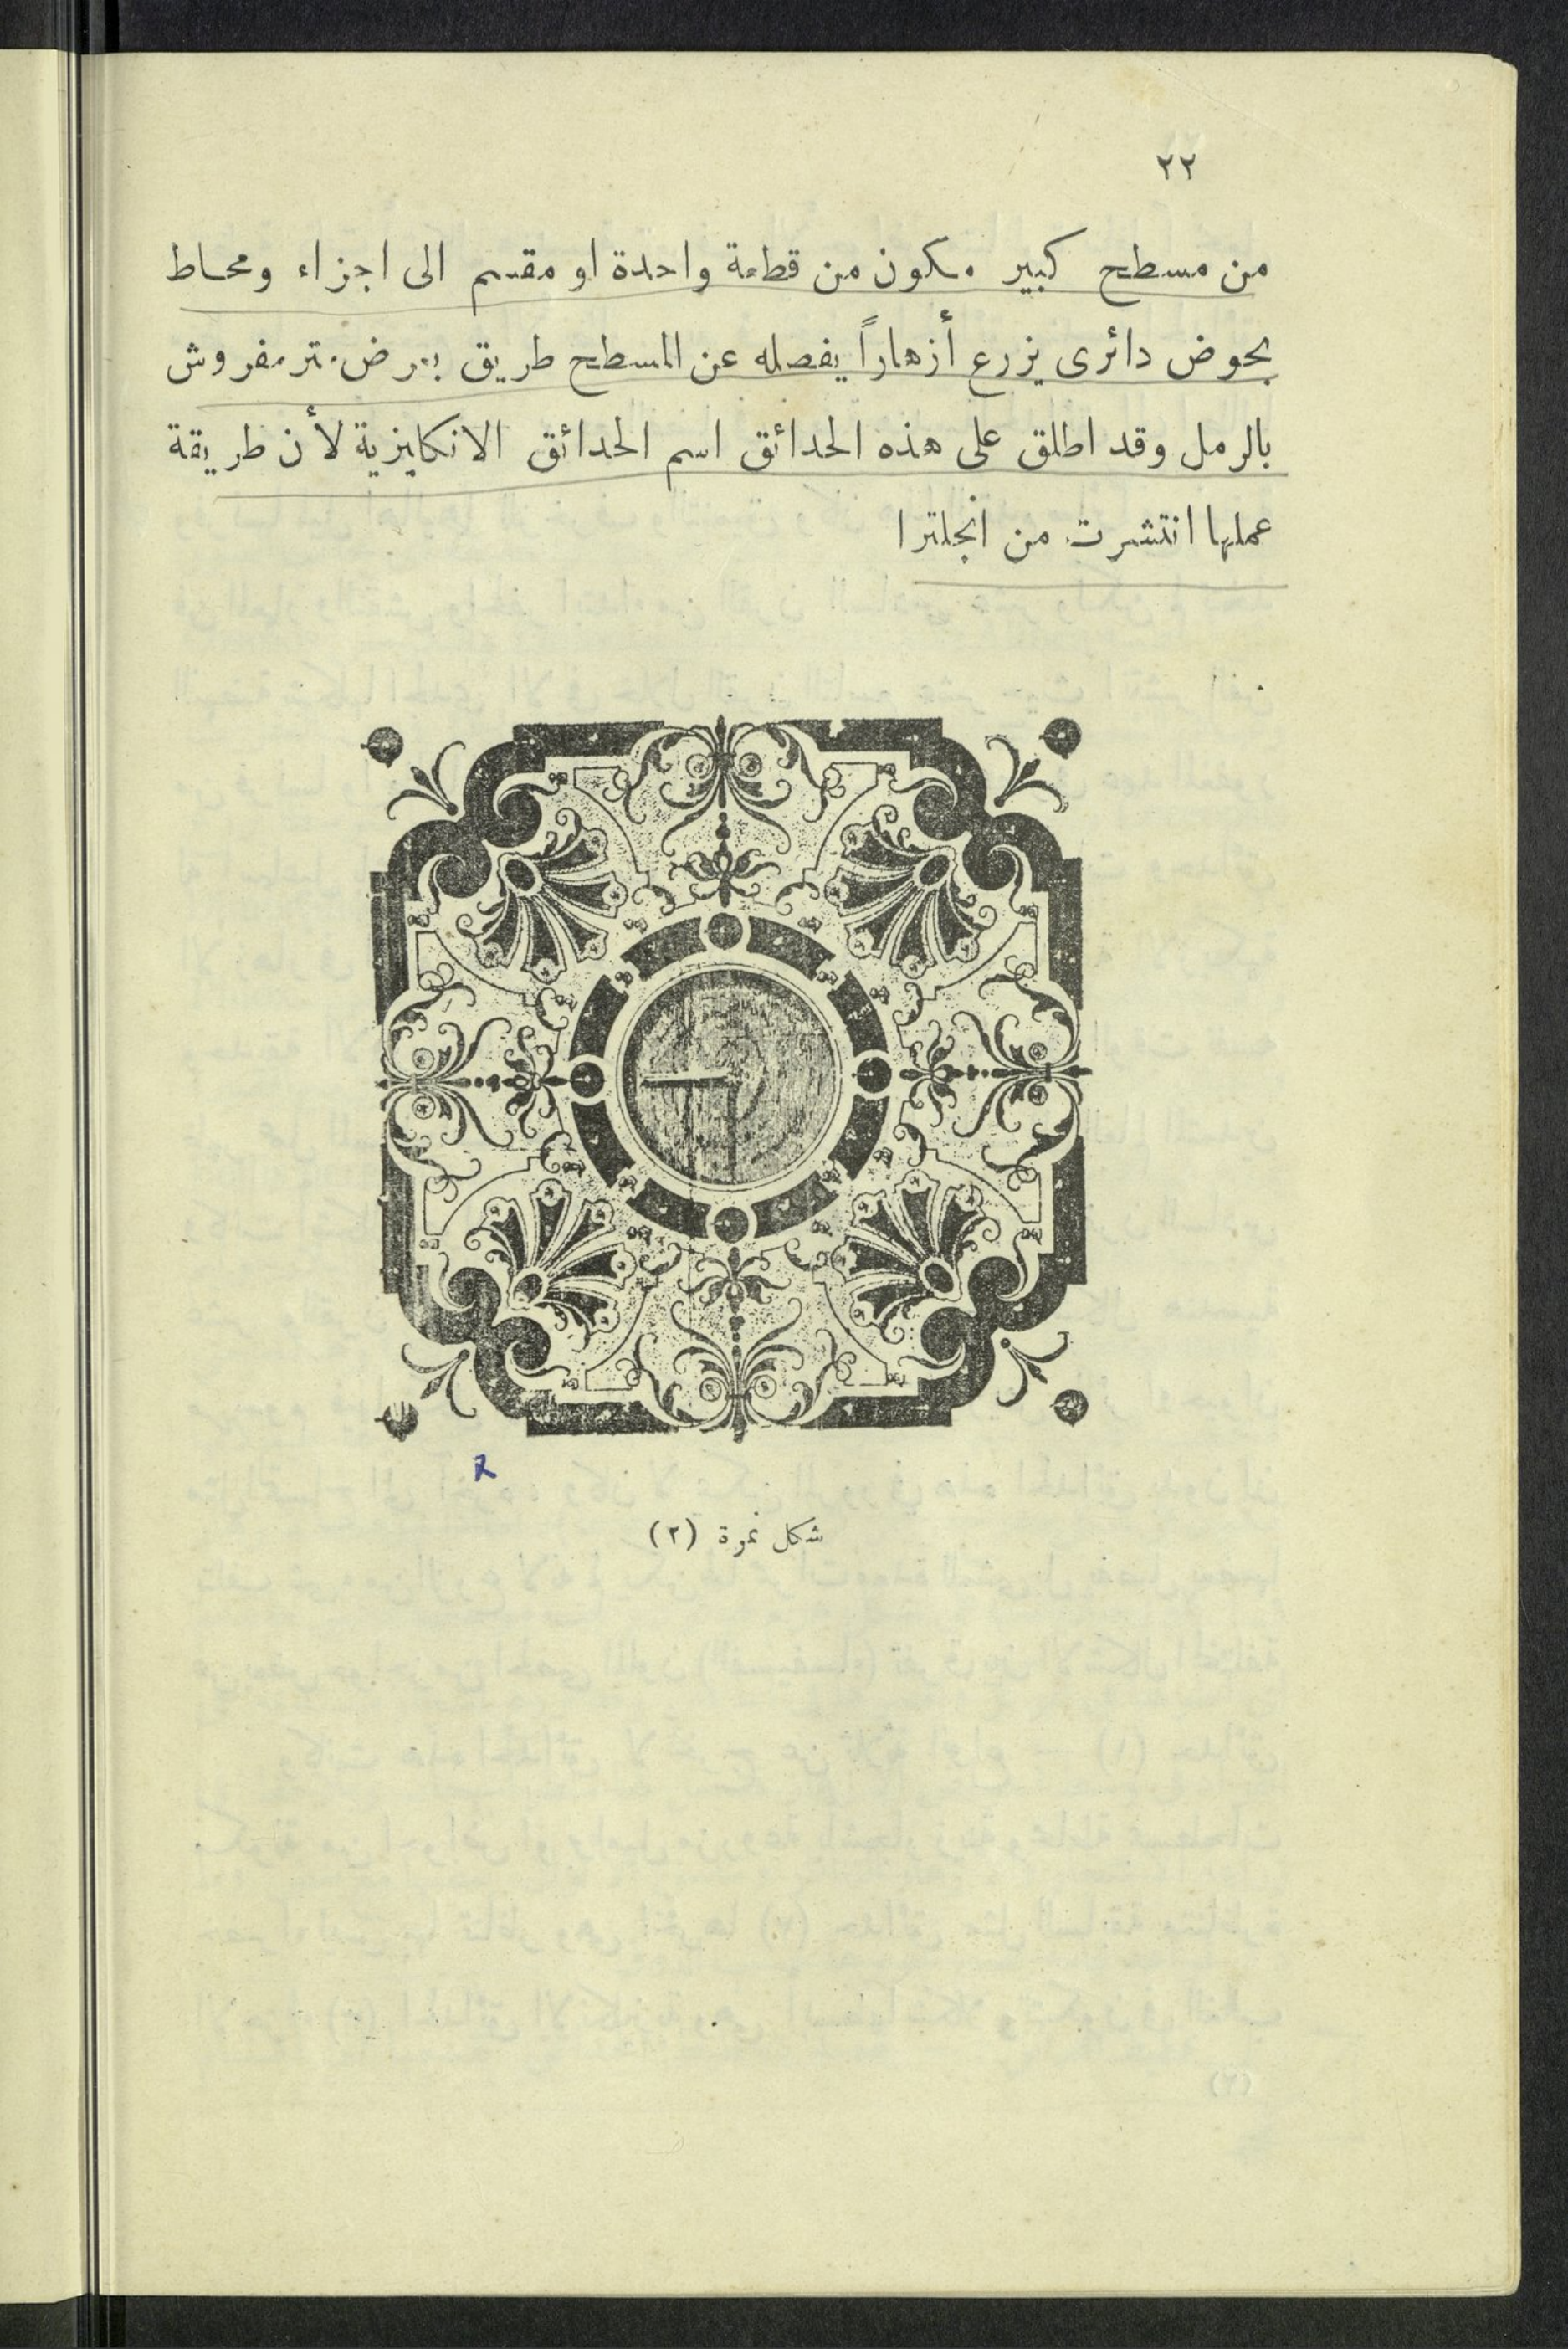 ٢٢
من مسطح كبير مكون من قطعة واحدة او مقسم الى اجزاء ومحاط
بحوض دائرى يزرع أزهاراً يفصله عن المسطح طريق بعرض متر مفروش
بالرمل وقد اطلق على هذه الحدائق اسم الحدائق الانكليزية لأن طريقة
عملها انتشرت من انجلترا
شكل نمرة (٢)